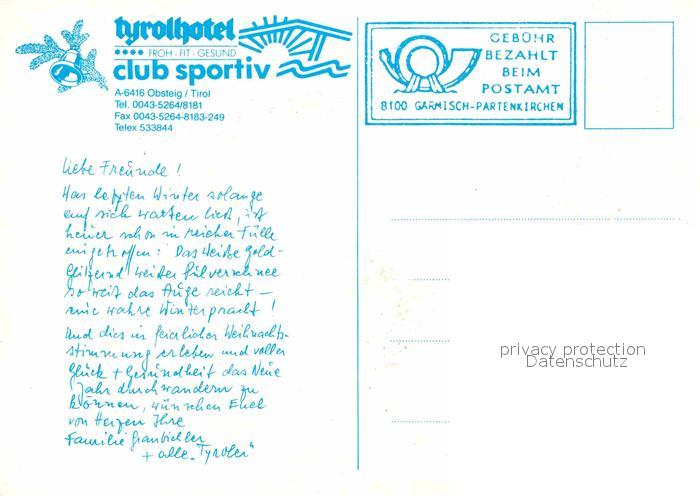 tyrolhotel
**** FROH - FIT - GESUND
club sportiv
A-6416 Obsteig / Tirol
Tel. 0043-5264/8181
Fax 0043-5264-8183-249
Telex 533844
GEBÜHR
BEZAHLT
BEIM
POSTAMT
8100 GARMISCH-PARTENKIRCHEN
Liebe Freunde!
Was letzten Winter solange
auf sich warten ließ, ist
heuer schon in reicher Fülle
eingetroffen: Das Weiße Gold-
Glitzernd weißer Pulverschnee
so weit das Auge reicht –
eine wahre Winterpracht!
Und dies in feierlicher Weihnachts-
stimmung erleben und voller
Glück + Gesundheit das Neue
Jahr durchwandern zu
können, wünschen Euch
von Herzen Ihre
Familie
+ alle "Tyroler"
privacy protection
Datenschutz